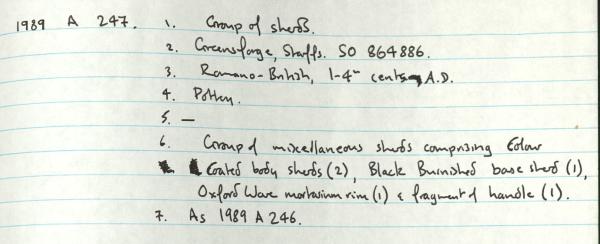 1989 A 247. 1. Group of sherds.
2. Greensforge, Staffs. SO 864886.
3. Romano-British, 1-4th cents A.D.
4. Pottery.
5. —
6. Group of miscellaneous sherds comprising Colour
Coated body sherds (2), Black Burnished base sherd (1),
Oxford Ware mortarium rim (1) & fragment of handle (1).
7. As 1989 A 246.